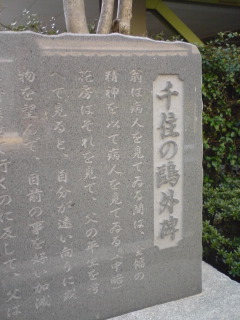 千住の鷗外碑
翁は病人を見てゐる間は、全幅の
精神を以て病人を見てゐる(中略)
花房はそれを見て、父の平生を考
へて見ると、自分が遠い向うに或
物を望んで、目前の事を好い加減
行くのに反して、父は